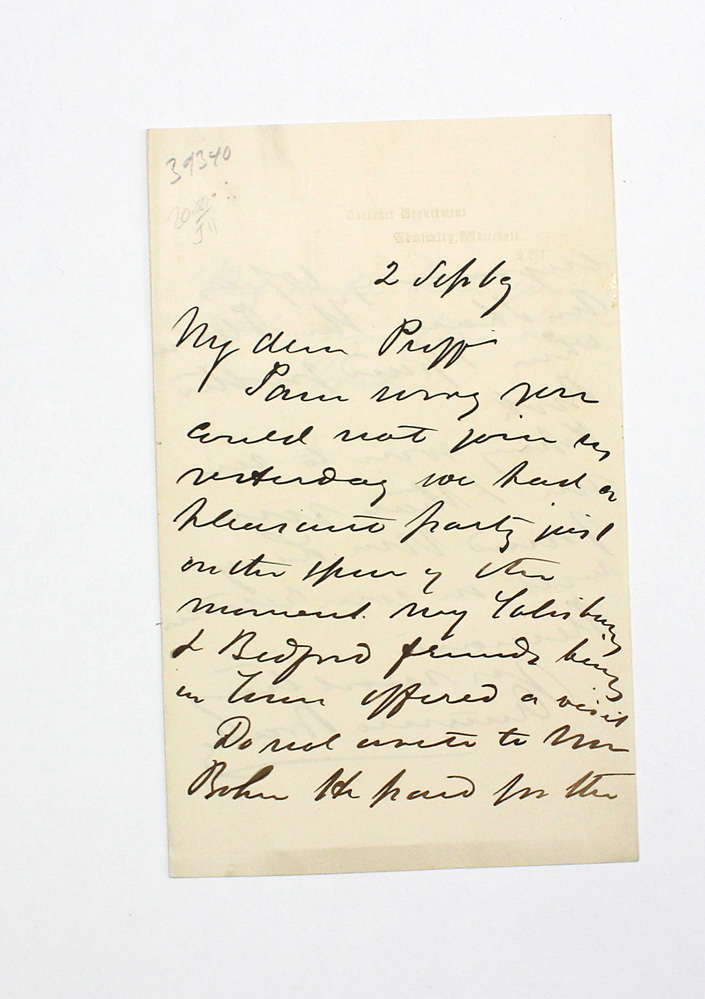 39340
Contract Department
Admiralty, Whitehall
2 Sep 69
My dear
I am sorry you
could not join us
yesterday we had a
pleasant party just
on the spur of the
moment. my Salisbury
& Bedford friends being
in Town offered a visit
Do not write to Mr
Bohn He paid for the